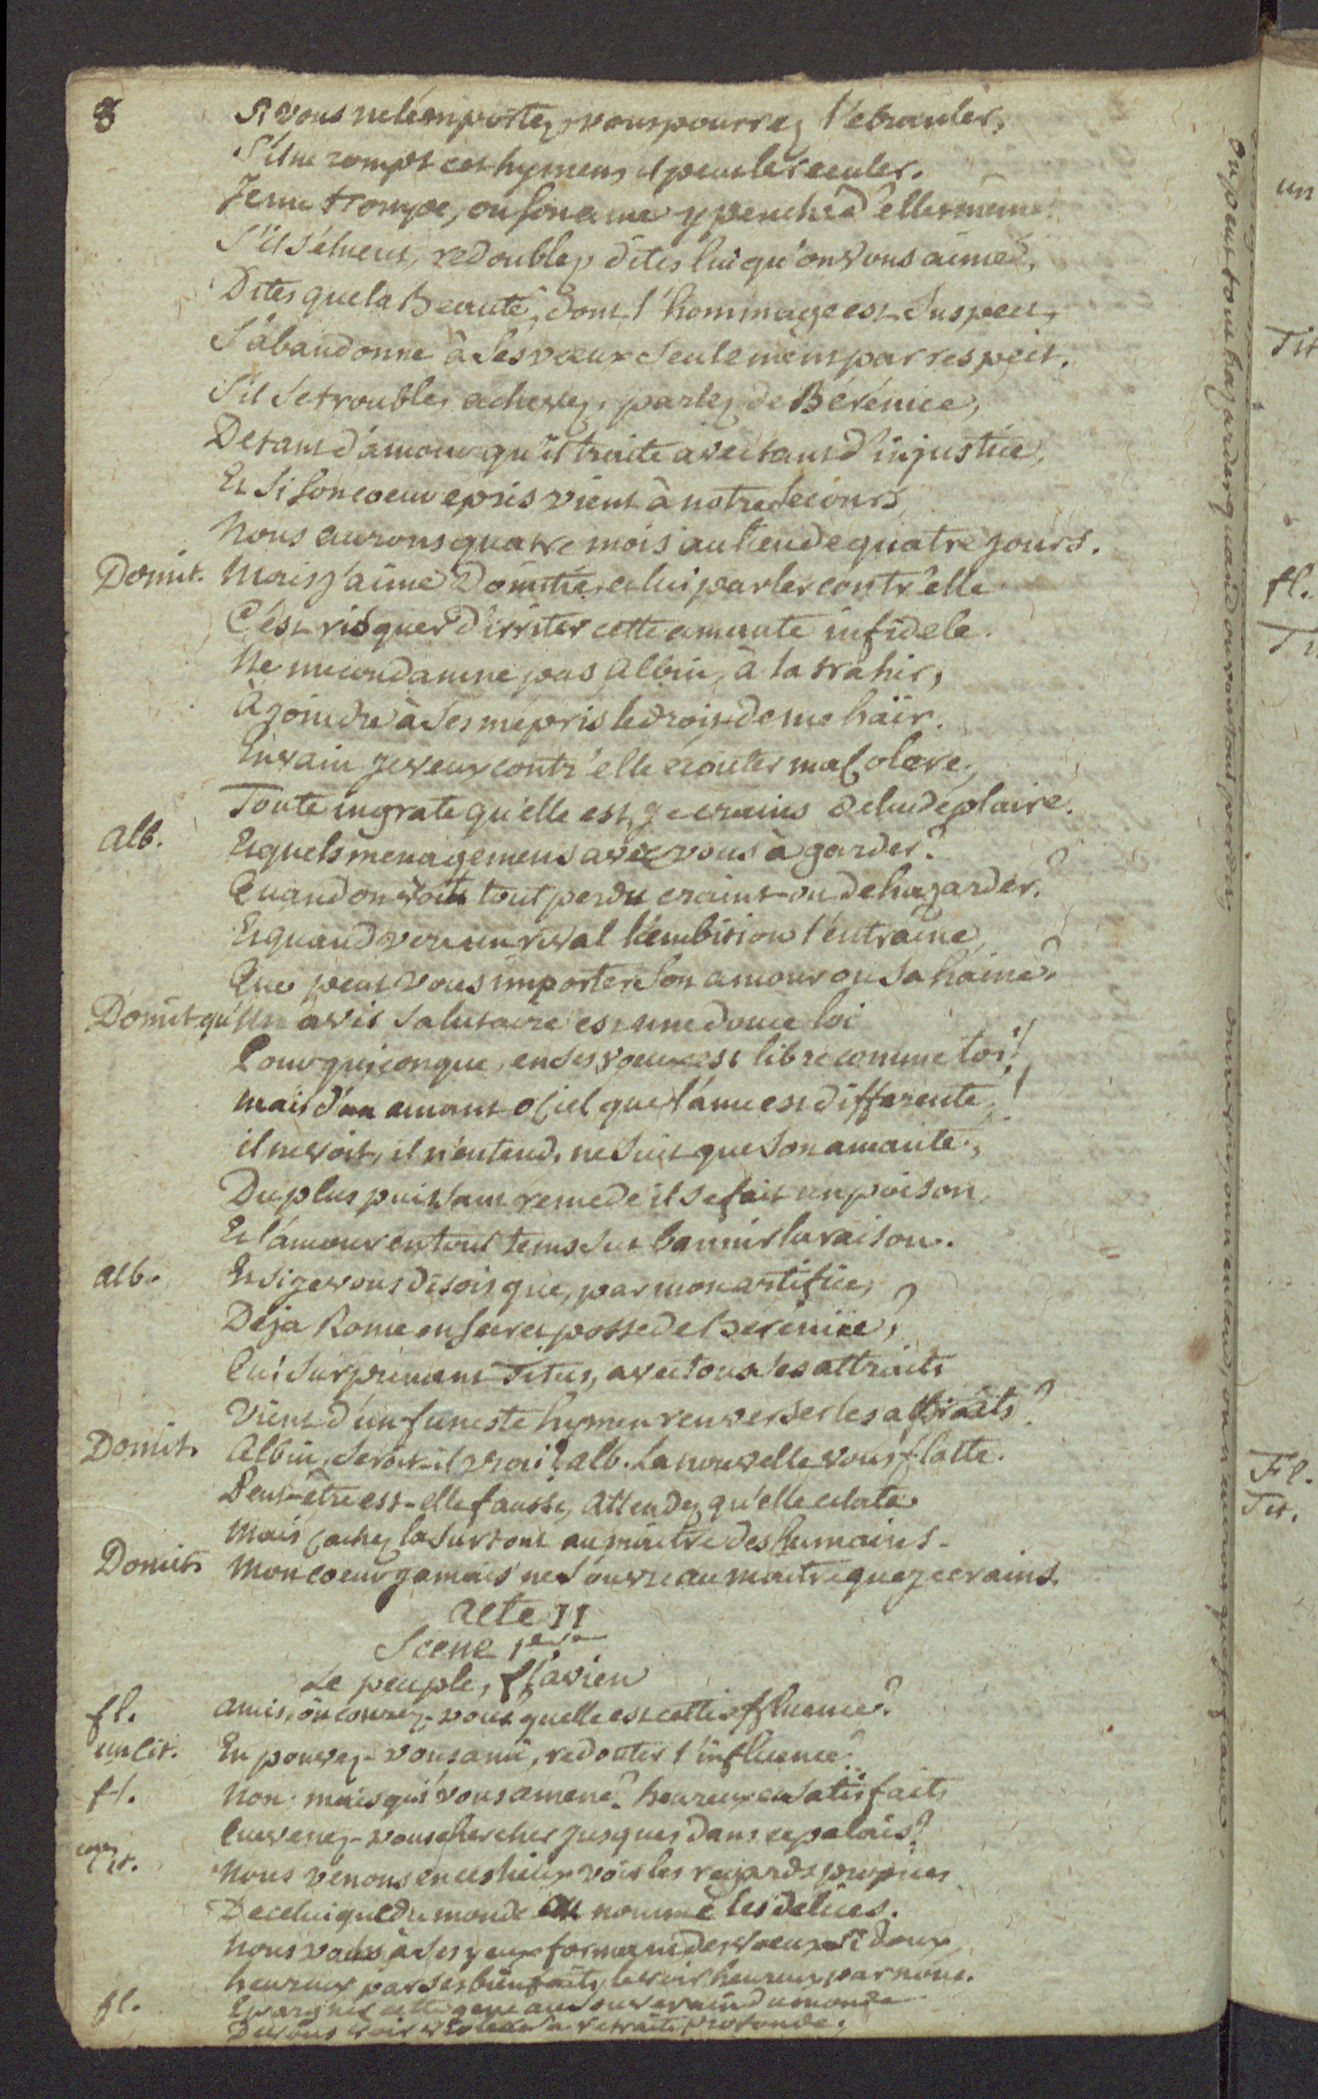 8
Si vous ne l'emportez, vous pourrez l'ebranler,
S'il ne rompt cet hymen, il peut le reculer.
Je me trompe, ou son ame y penche d'elle même.
S'il s'émeut, redoublez dites lui qu'on vous aime,
Dites que la Beauté, dont l'hommage est suspect,
S'abandonne à ses vœux seulement par respect.
S'il se trouble, achevez, parlez de Bérénice,
De tant d'amour qu'il traite avec tant d'injustice,
Et si son coeur epris vient à notre secours
Nous aurons quatre mois au lieu de quatre jours.
Domit. Mais j'aime Domitie, et lui parler contr'elle
C'est risquer d'irriter cette amante infidele.
Ne me condamne pas, Albin, à la trahir,
À joindre à ses mepris le droit de me haïr.
En vain je veux contr'elle écouter ma Colere,
Toute ingrate qu'elle est, je crains de lui déplaire.
Alb. Et quels menagemens avez vous à garder?
Quand on voit tout perdu craint-on de hazarder?
Et quand vers un rival l'ambition l'entraine,
Que peut vous importer son amour ou sa haine?
Domit. qu'un avis salutaire est une douce loi
Pour quiconque, en ses voeux est libre comme toi!
mais d'un amant o Ciel que l'ame est differente!
il ne voit, il n'entend, ne suit que son amante,
Du plus puissant remede il se fait un poison
Et l'amour en tout tems sut bannir la raison.
alb. Et si je vous disois que, par mon artifice,
Déja Rome en secret possede Berenice,?
Qui surprenant Titus, avec tous ses attraits
Vient d'un funeste hymen renverser les apprêts?
Domit. Albin, seroit-il vrai? alb. La nouvelle vous flatte.
Peut-être est-elle fausse, attendez qu'elle eclate.
Mais cachez la surtout au maitre des humains.
Domit. Mon coeur jamais ne s'ouvre au maitre que je crains.
Acte II
Scene 1ere
Le peuple, Flavien
fl. amis, où courez-vous? quelle est cette affluence?
un Cit. En pouvez-vous ami, redouter l'influence?
fl. Non: mais qui vous amene? heureux et satisfaits
Que venez-vous chercher jusques dans ce palais?
un Cit. Nous venons en ces lieux voir les regards propices
De celui que du monde on nomme les délices.
Nous à ses yeux formant des voeux si doux
heureux par ses bienfaits, le voir heureux par nous.
fl. Epargnez cette gene au souverain du monde
sa retraite profonde.
On peut tout hazarder quand on voit tout perdu
un
Tit
fl.
Ti
Fl.
Tit.